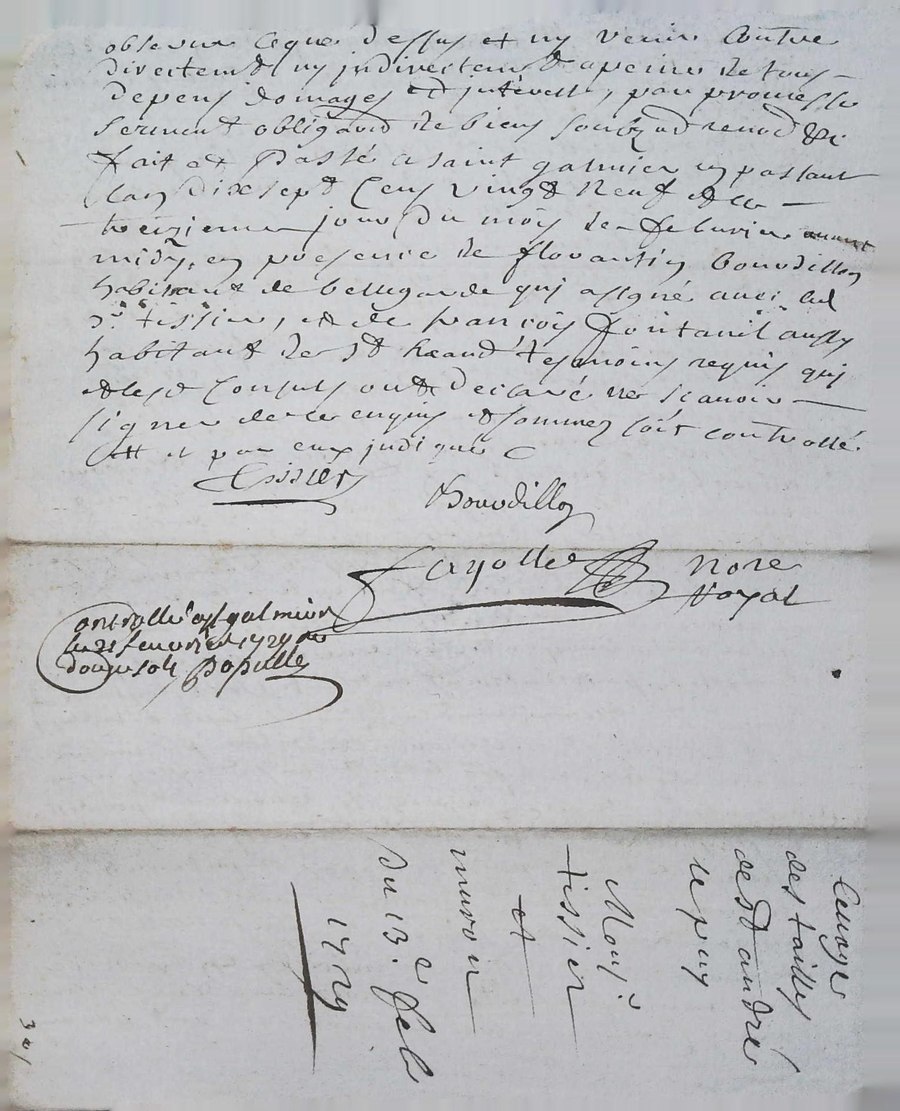 observer ceque dessus et ny venir contre
directemt ny jndirectemt apeine de tous
depens domages et jnterests, par promesse
serment obligaõn de biens soubz aõn renoõn &c
fait et Passé a saint galmier en passant
Lan dix sept Cens vingt neuf et le
treizieme jour du mois de feburier auant
midy, en presence de florantin bourdillon
habitant de bellegarde qui a signé auec led
sr. tissier, et de francois fontanil aussy
habitant de St heand tesmoins requis qui
et lesd Consuls ont Declaré ne scauoir
signer de ce enquis et sommez soit controllé
et par eux jndiqué
Tissier
Bourdillon
fayolle
nore
royal
Controllé a st galmier
le 21 feurier 1729 Reçu
douze sols Populle
Leuage
des tailles
de St andré
le puy
Mousr
tissier
et
muron
Du 13e feb
1729